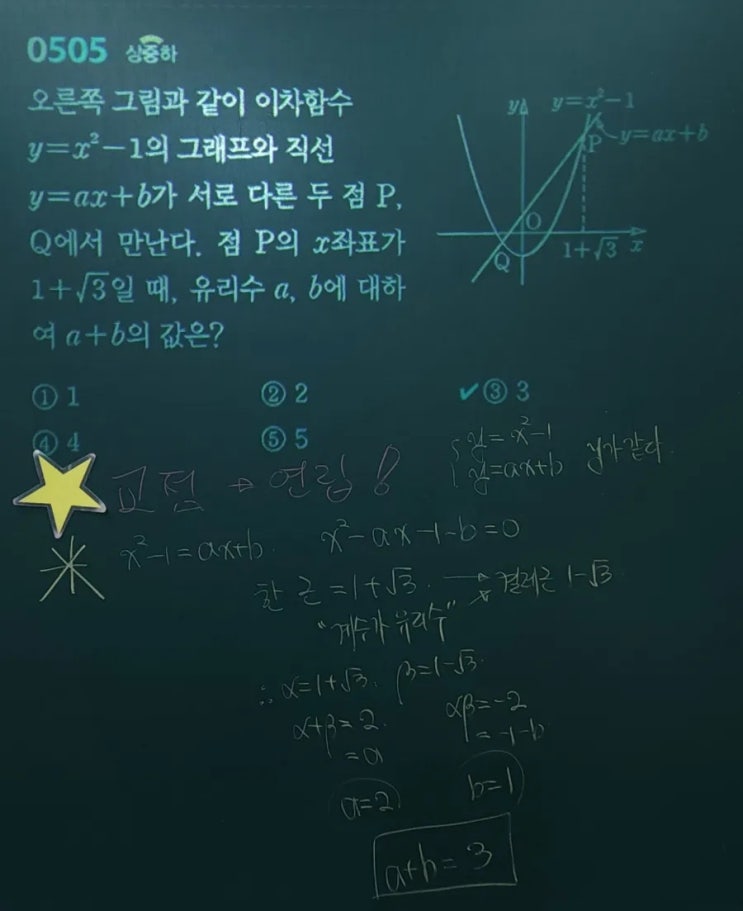 0505 상중하
오른쪽 그림과 같이 이차함수
y=x²-1의 그래프와 직선
y=ax+b가 서로 다른 두 점 P,
Q에서 만난다. 점 P의 x좌표가
1+√3일 때, 유리수 a, b에 대하
여 a+b의 값은?
y
y=x²-1
P
y=ax+b
O
Q
1+√3
x
① 1
② 2
✔③ 3
④ 4
⑤ 5
y=x²-1
y=ax+b
y가 같다.
교점 → 연립!
x²-1=ax+b.
x²-ax-1-b=0
한 근 =1+√3. → 켤레근 1-√3
"계수가 유리수"
∴ α=1+√3. β=1-√3.
α+β=2.
αβ=-2
=a
=-1-b
a=2
b=1
a+b=3